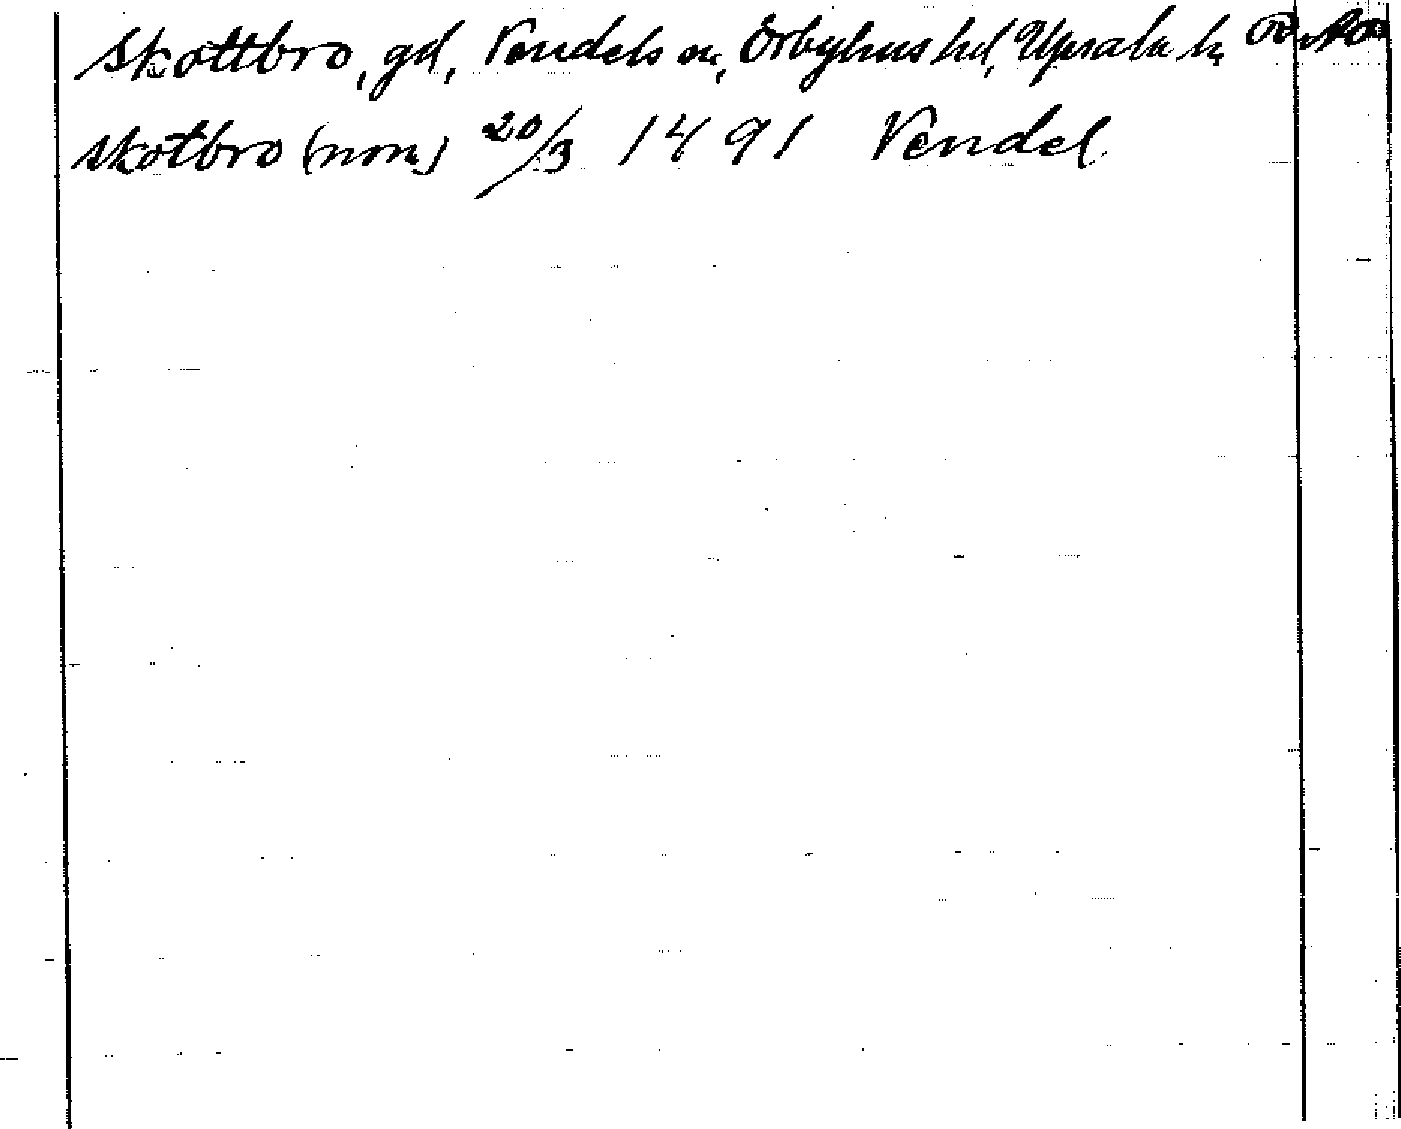 Skottbro, gd, Vendels sn, Örbyhus hd, Upsala l.
Skotbro (nom) 20/3 1491 Vendel